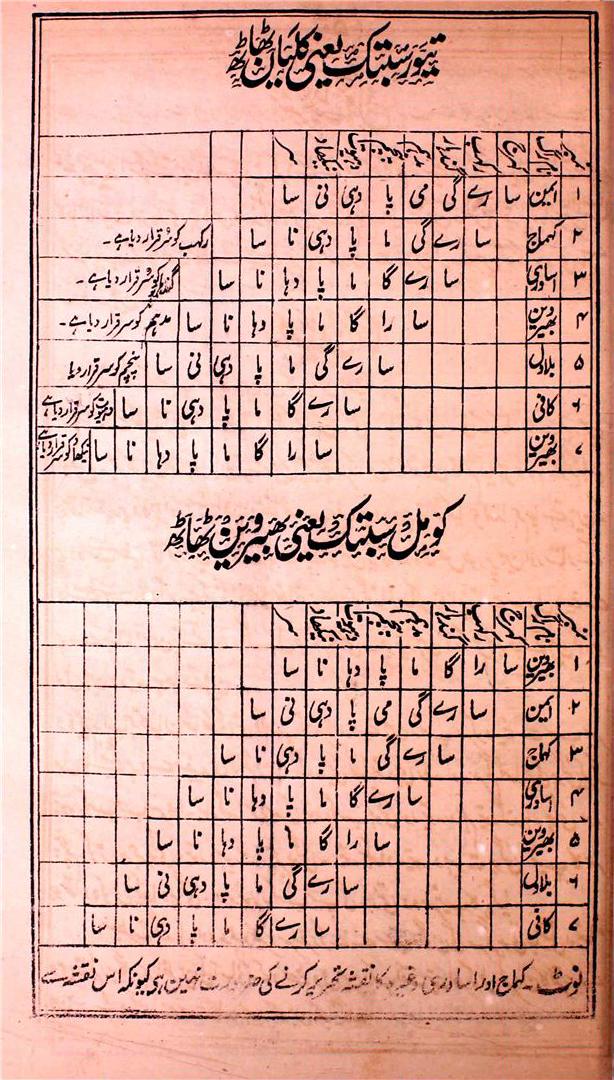 تیور سبتک یعنی کلیان ٹھاٹھ
نمبر نام راگ کھرج رکھب گندھار مدہم پنچم دہیوت نیکھاد سر
۱ ایمن سا رے گی می پا دہی نی سا
۲ کہماج سا رے گی ما پا دہی نا سا رکہب کو سر قرار دیا ہے ۔
۳ اساوری سا رے گا ما پا دہا نا سا گندہار کو سر قرار دیا ہے ۔
۴ بھیروین سا را گا ما پا دہا نا سا مدہم کو سر قرار دیا ہے ۔
۵ بلاول سا رے گی ما پا دہی نی سا پنچم کو سر قرار دیا
۶ کافی سا رے گا ما پا دہی نا سا دہیوت کو سر قرار دیا ہے
۷ بھیروین سا را گا ما پا دہا نا سا نیکھاد کو سر قرار دیا ہے
کومل سبتک یعنی بھیروین ٹھاٹھ
نمبر نام راگ کھرج رکھب گندھار مدہم پنچم دہیوت نیکھاد سر
۱ بھیروین سا را گا ما پا دہا نا سا
۲ ایمن سا رے گی می پا دہی نی سا
۳ کہماج سا رے گی ما پا دہی نا سا
۴ اساوری سا رے گا ما پا دہا نا سا
۵ بھیروین سا را گا ما پا دہا نا سا
۶ بلاول سا رے گی ما پا دہی نی سا
۷ کافی سا رے گا ما پا دہی نا سا
نوٹ ۔ کہماج اور اساوری وغیرہ کا نقشہ تحریر کرنے کی ضرورت نہین ہی کیونکہ اس نقشہ سے